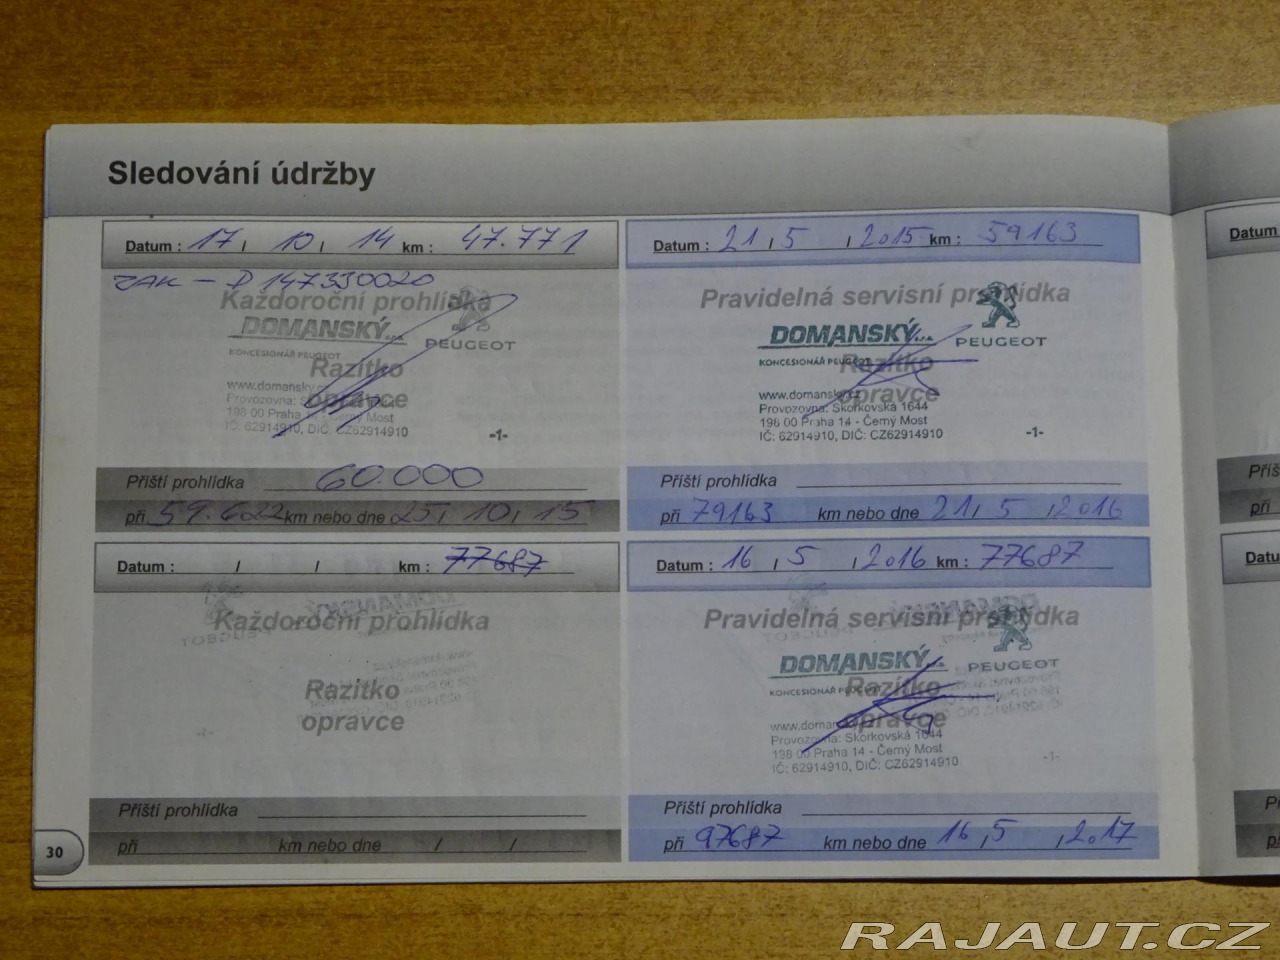 Sledování údržby
Datum : 17 / 10 / 14 km : 47.771
ZAK – D 147330020
Každoroční prohlídka
DOMANSKÝ s.r.o.
PEUGEOT
KONCESIONÁŘ PEUGEOT
Razítko
opravce
www.domansky.cz
198 00 Praha 14 - Černý Most
IČ: 62914910, DIČ: CZ62914910
-1-
Příští prohlídka 60.000
při 59.622 km nebo dne 25 / 10 / 15
Datum : 21 / 5 / 2015 km : 59163
Pravidelná servisní prohlídka
DOMANSKÝ s.r.o.
PEUGEOT
KONCESIONÁŘ PEUGEOT
Razítko
opravce
www.domansky.cz
Provozovna: Skorkovská 1644
198 00 Praha 14 - Černý Most
IČ: 62914910, DIČ: CZ62914910
-1-
Příští prohlídka
při 79163 km nebo dne 21 / 5 / 2016
Datum : / / km : 77687
Každoroční prohlídka
Razítko
opravce
Příští prohlídka
při km nebo dne / /
Datum : 16 / 5 / 2016 km : 77687
Pravidelná servisní prohlídka
DOMANSKÝ s.r.o.
PEUGEOT
KONCESIONÁŘ PEUGEOT
Razítko
opravce
Provozovna: Skorkovská 1644
198 00 Praha 14 - Černý Most
IČ: 62914910, DIČ: CZ62914910
-1-
Příští prohlídka
při 97687 km nebo dne 16 / 5 / 2017
30
Datum
při
Datu
při
RAJAUT.CZ